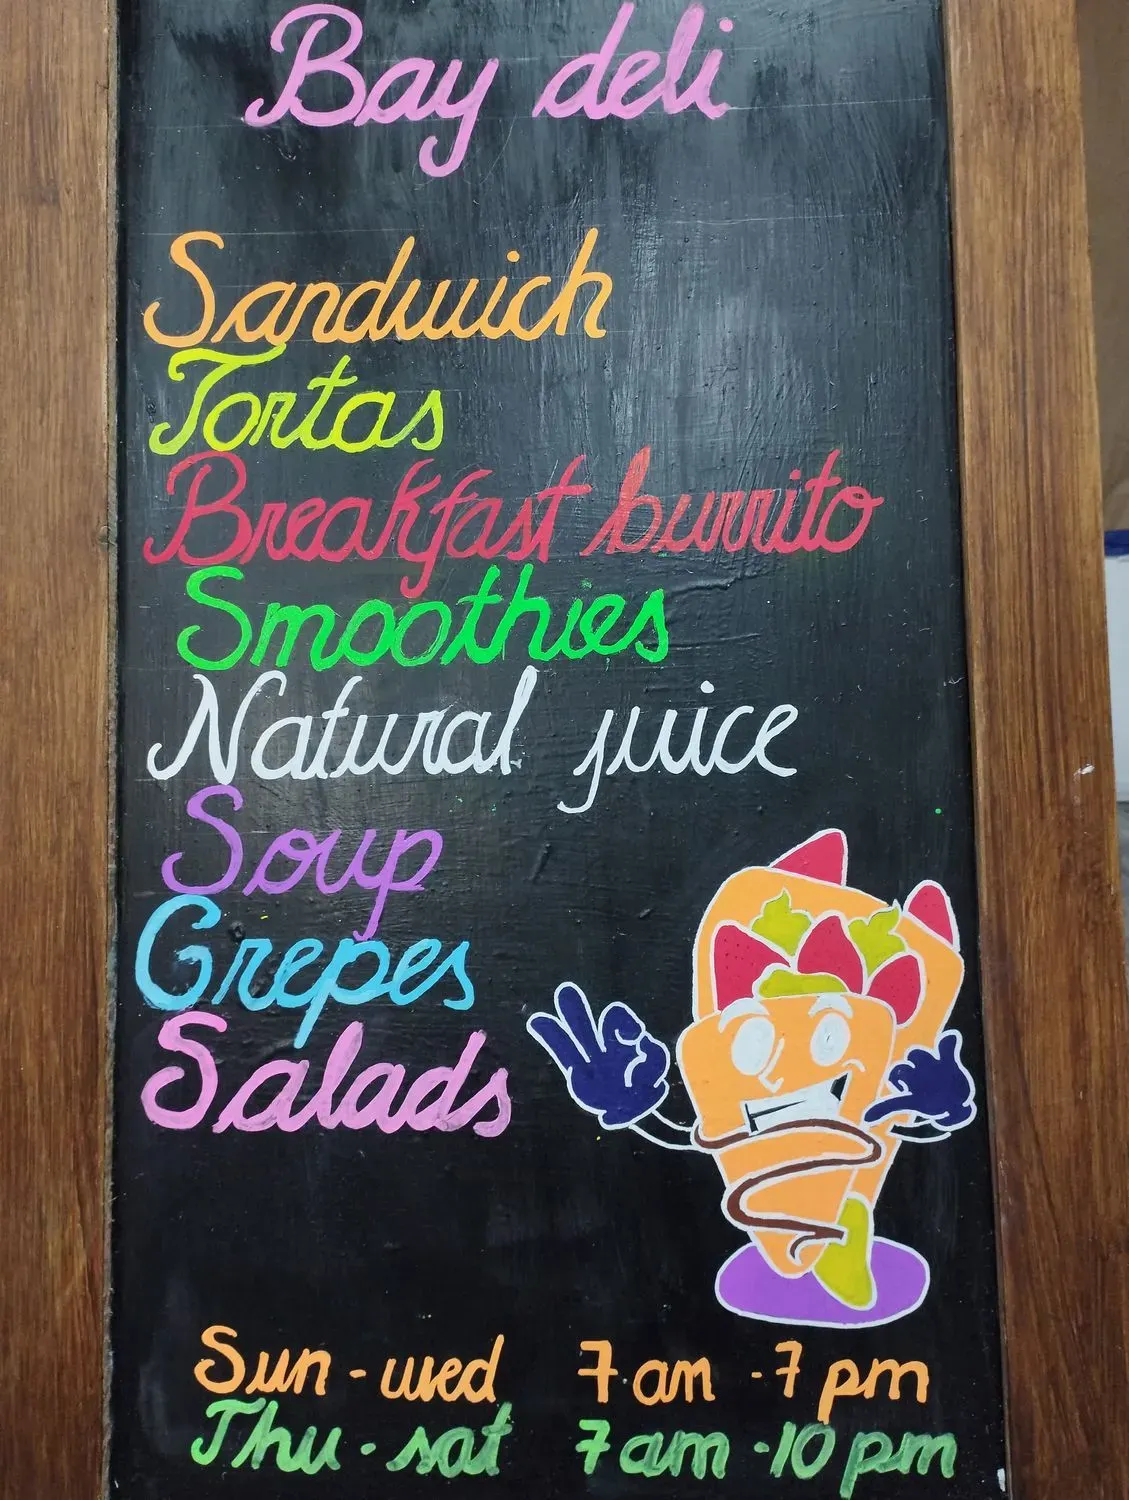 Bay deli
Sandwich
Tortas
Breakfast burrito
Smoothies
Natural juice
Soup
Crepes
Salads
Sun - wed 7 am - 7 pm
Thu - sat 7 am - 10 pm